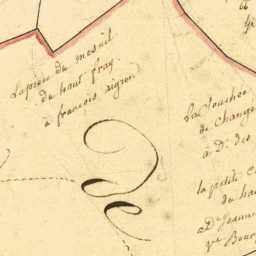 La piece du mesnil
du haut fray
à francois aigron
De
La Touche
de Change
à D.e des
la petite
du ha
à D.e Jeanne
V.e Bour